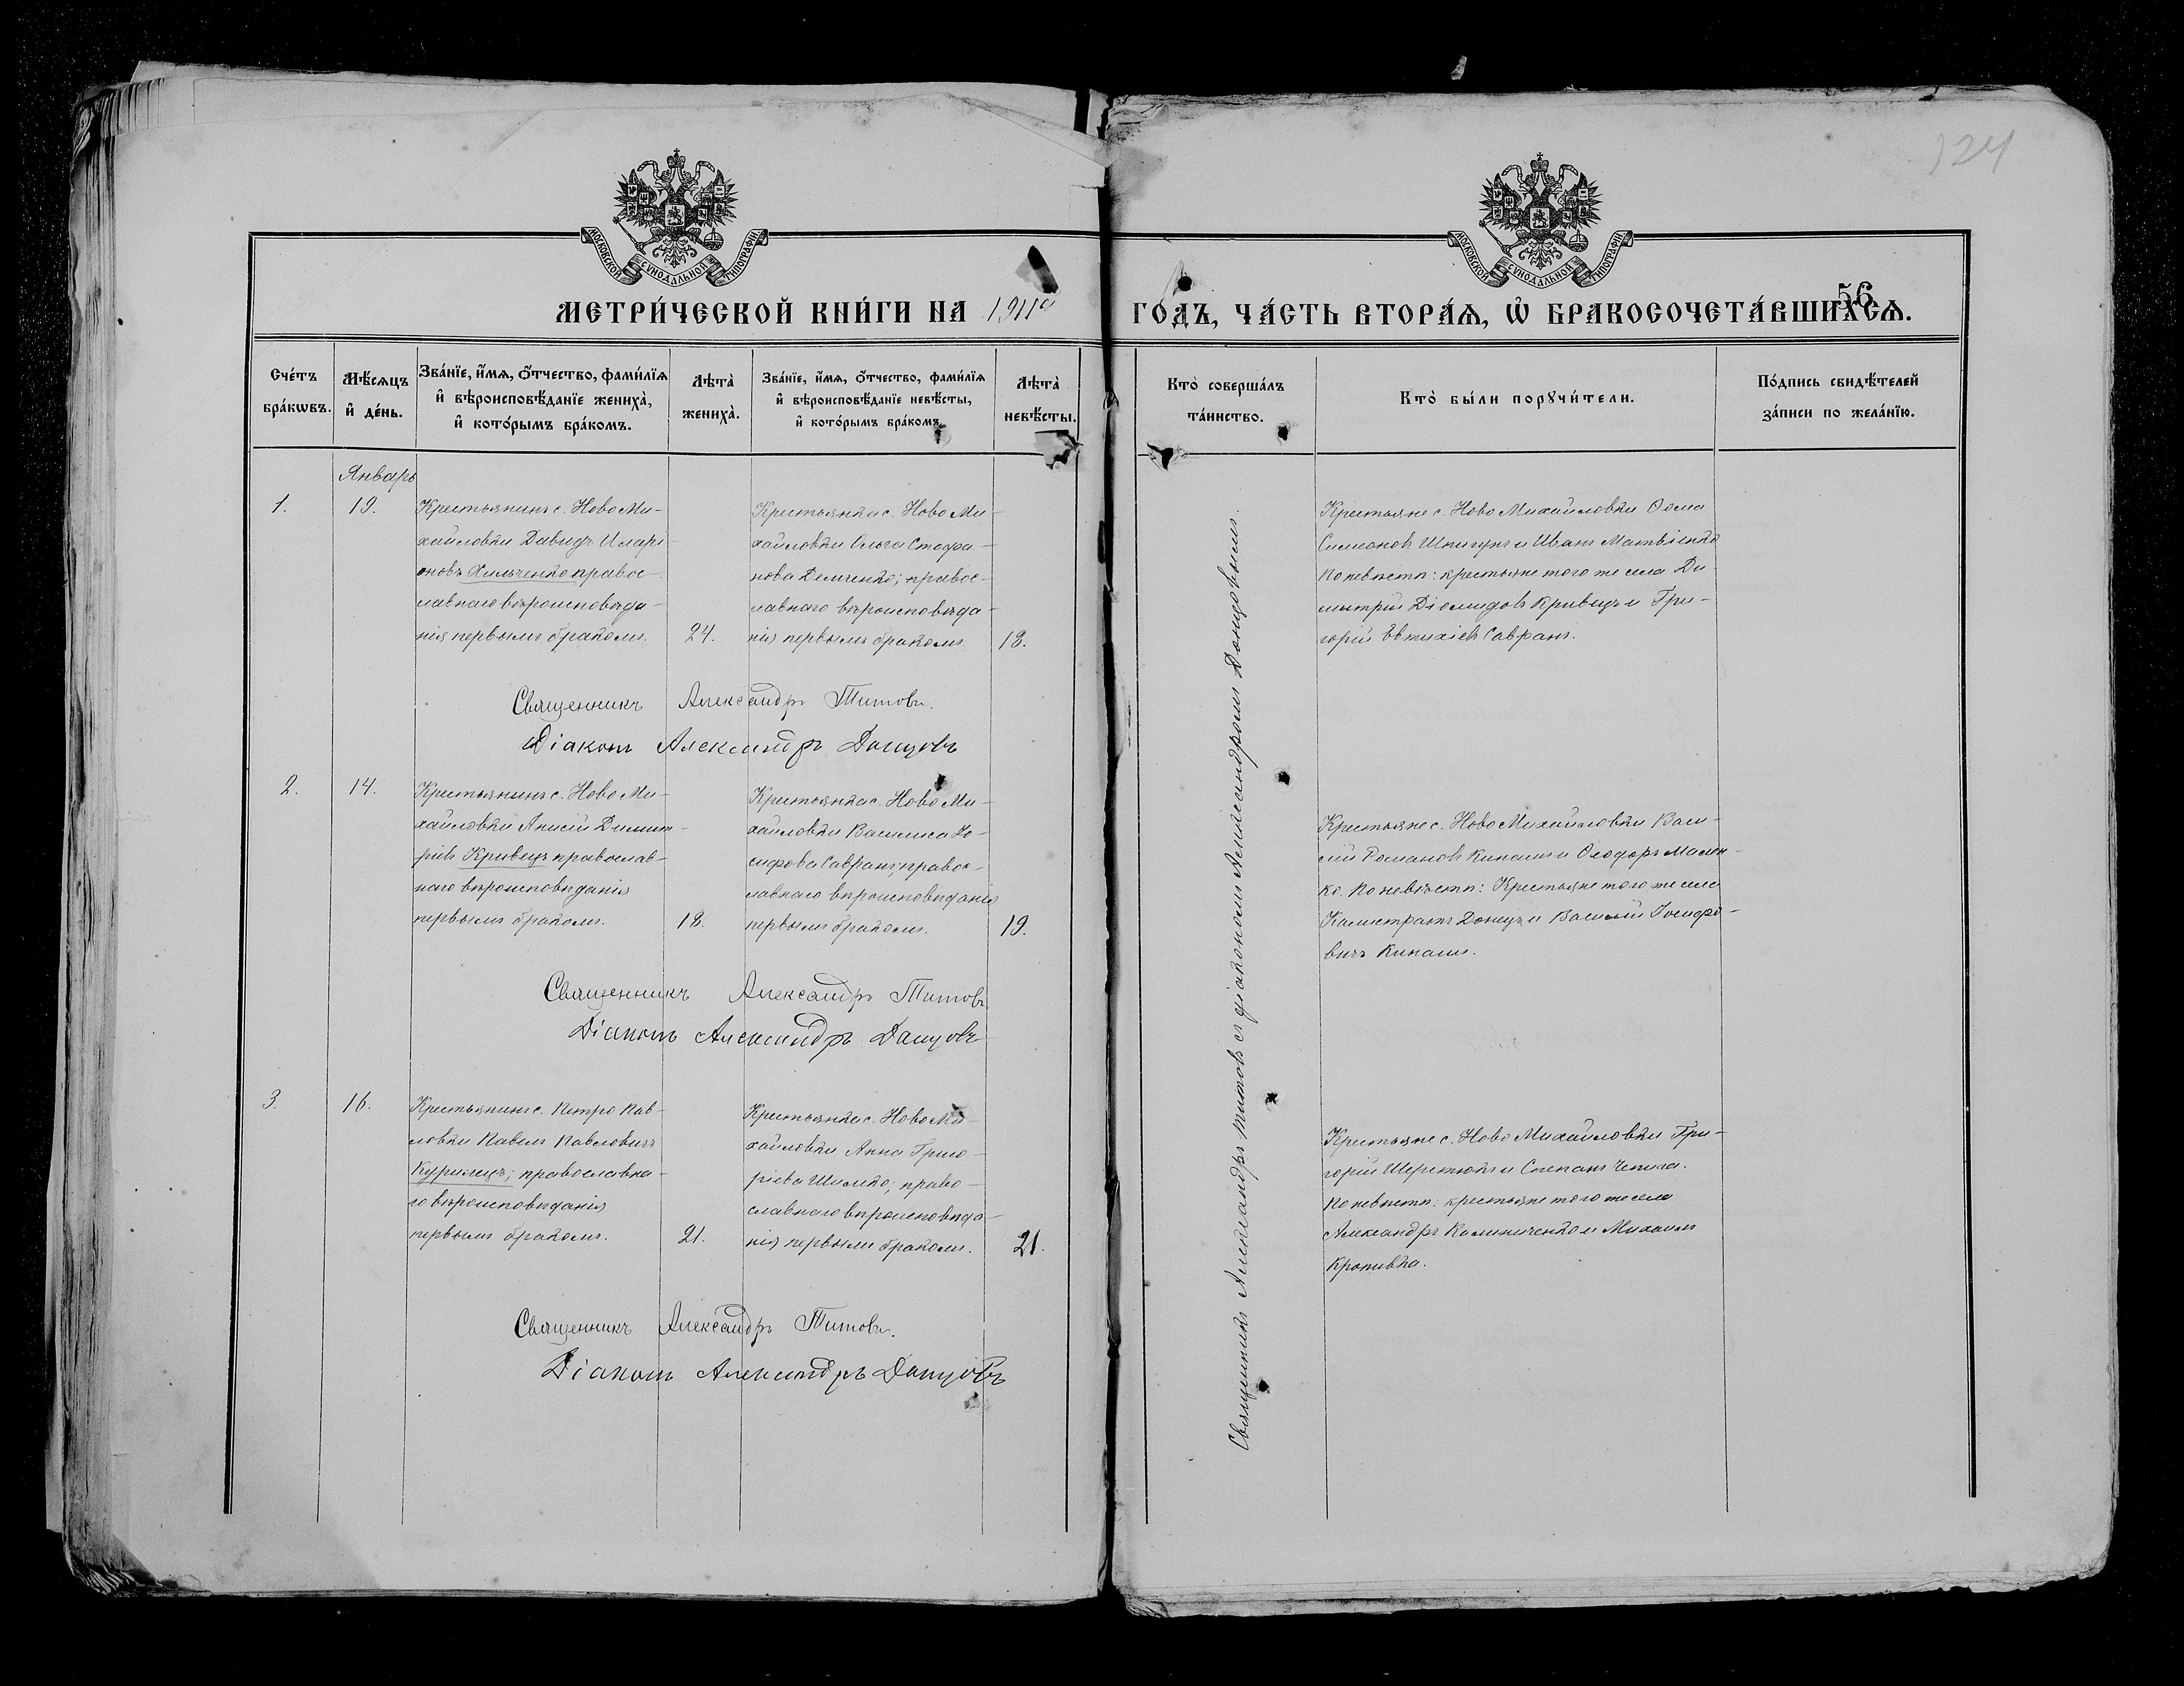 124
МОСКОВСКОЙ СѴНОДАЛЬНОЙ ТИПОГРАФІИ
МОСКОВСКОЙ СѴНОДАЛЬНОЙ ТИПОГРАФІИ
56
МЕТРИ́ЧЕСКОЙ КНИ́ГИ НА
ГОДЪ, ЧА́СТЬ ВТОРА́Я, Ѽ БРАКОСОЧЕТА́ВШИХСѦ.
Сче́тъ бра́кѡвъ.
Мѣ́сяцъ и҆ де́нь.
Зва́нїе, и҆́мѧ, ѻ҆́тчество, фами́лїѧ
и҆ вѣроисповѣ́данїе женихà,
и҆ кото́рымъ бра́комъ.
Лѣ́та женихà.
Зва́нїе, и҆́мѧ, ѻ҆́тчество, фами́лїѧ
и҆ вѣроисповѣ́данїе невѣ́сты,
и҆ кото́рымъ бра́комъ.
Лѣ́та невѣ́сты.
Кто̀ соверша́лъ
та́инство.
Кто̀ бы́ли порꙋчи́тели.
По́дпись свидѣ́телей
за́писи по жела́нїю.
Январь
1.
19.
Крестьянинъ с. Ново Ми-
хайловки Давидъ Иларі-
оновъ Хильченко правос-
лавнаго вѣроисповѣда-
нія первымъ бракомъ.
24.
Крестьянка с. Ново Ми-
хайловки Ольга Стефа-
нова Демченко; правос-
лавнаго вѣроисповѣда-
нія первымъ бракомъ.
18.
Крестьяне с. Ново Михайловки Ѳома
Симеоновъ Шпигунъ и Иванъ Матвіенко
По невѣстѣ: крестьяне того же села Ди-
митрій Діомидовъ Кривецъ и Гри-
горій Евтихіевъ Савранъ.
Священникъ Александръ Титовъ.
Діаконъ Александръ Донцовъ
2.
14.
Крестьянинъ с. Ново Ми-
хайловки Анисій Димит-
ріевъ Кривецъ православ-
наго вѣроисповѣданія
первымъ бракомъ.
18.
Крестьянка с. Ново Ми-
хайловки Василиса Іо-
сифова Савранъ; правос-
лавнаго вѣроисповѣданія
первымъ бракомъ.
19.
Крестьяне с. Ново Михайловки Васи-
лій Романовъ Кипаш и Ѳеодоръ Мален-
ко. По невѣстѣ: Крестьяне того же села
Калистратъ Донецъ и Василій Іосифо-
вичъ Кипаш.
Священникъ Александръ Титовъ
Діаконъ Александръ Донцовъ
3.
16.
Крестьянинъ с. Петро Пав-
ловки Павелъ Павловичъ
Курилецъ; православна-
го вѣроисповѣданія
первымъ бракомъ.
21.
Крестьянка с. Ново Ми-
хайловки Анна Григо-
ріева Шамко; право-
славнаго вѣроисповѣда-
нія первымъ бракомъ.
21.
Крестьяне с. Ново Михайловки Гри-
горій Шереметъ и Степанъ Чепига.
По невѣстѣ: крестьяне того же села
Александръ Калиниченко и Михаилъ
Кропивка.
Священникъ Александръ Титовъ.
Діаконъ Александръ Донцовъ
Священникъ Александръ Титовъ съ діакономъ Александромъ Донцовымъ.